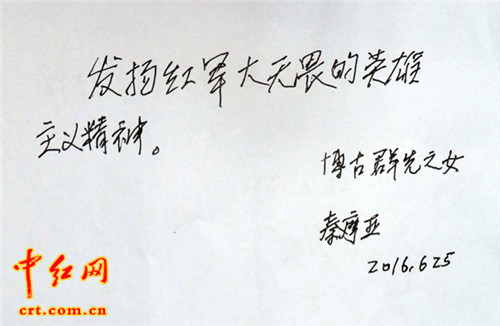 发扬红军大无畏的英雄
主义精神。
博古群先之女
秦摩亚
2016.6.25
中红网
crt.com.cn